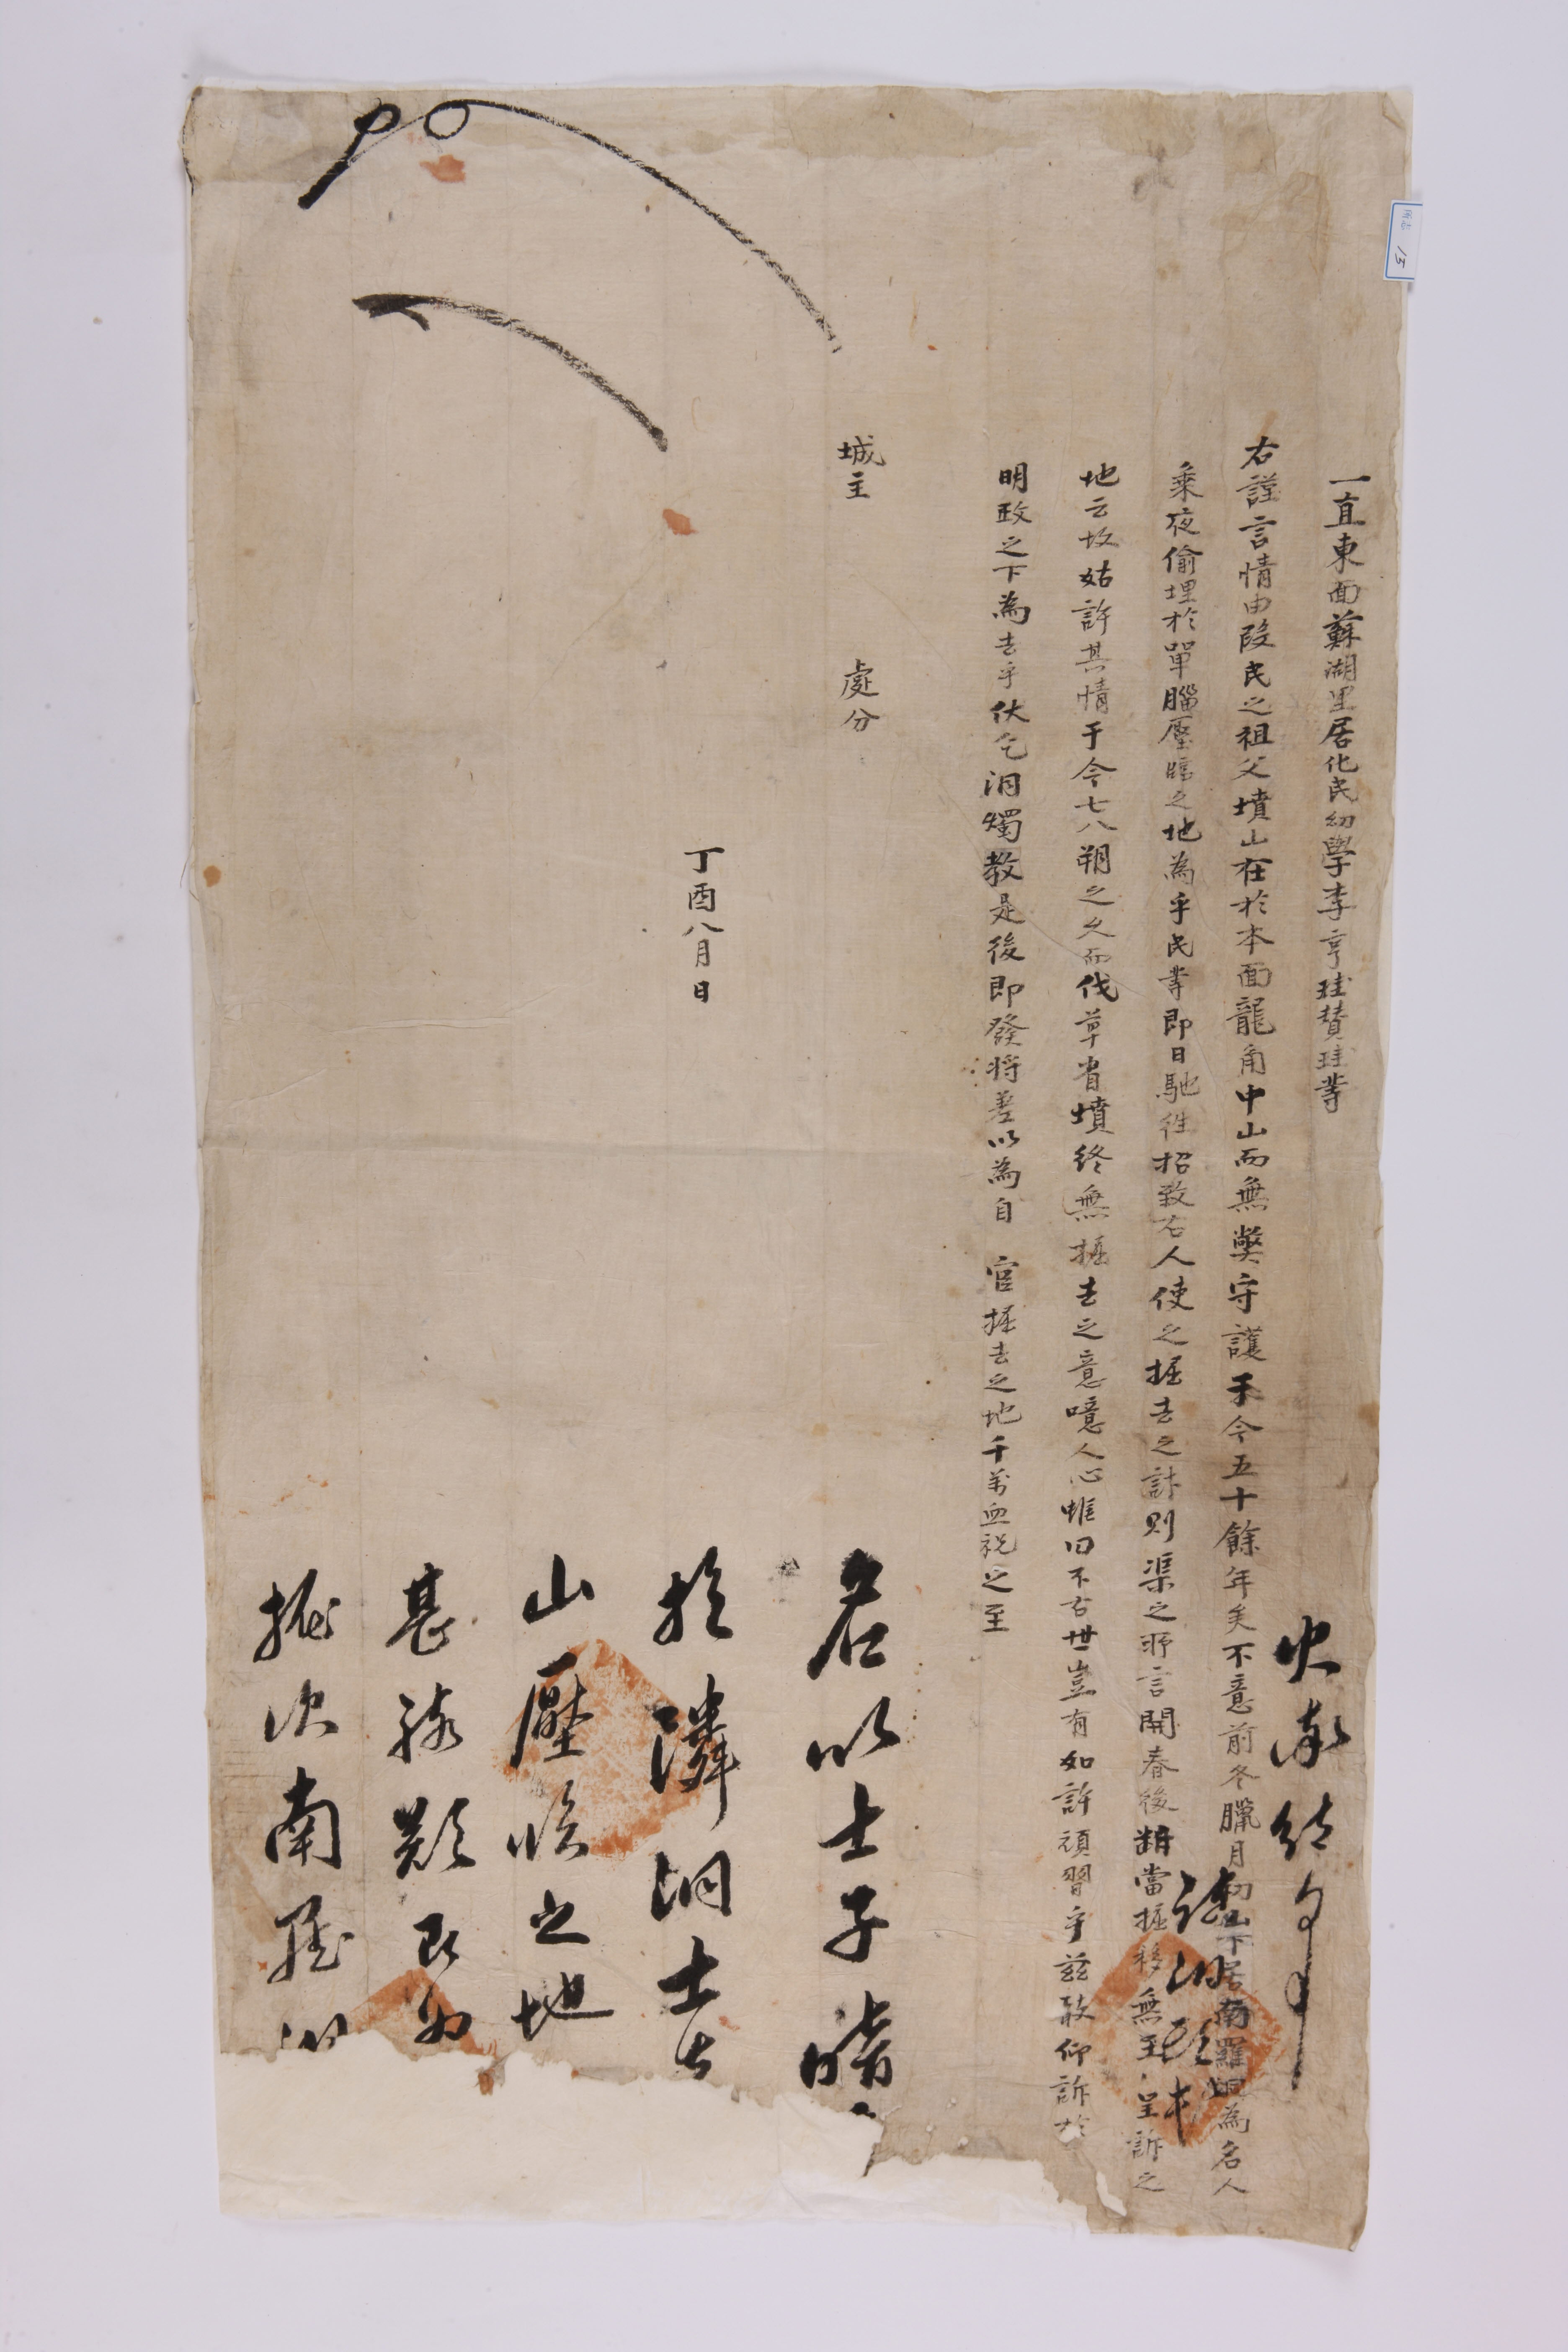 一直東面蘇湖里居化民幼學李亨珪賛珪等
右謹言情由段民之祖父墳山在於本面龍角中山而無獘守護于今五十餘年矣不意前冬臘月初山下居南羅烔為名人
乘夜偷埋於單腦壓臨之地為乎民等即日馳徃招致右人使之掘去之計則渠之所言開春後斷當掘移無至呈訴之
地云故姑許其情于今七八朔之久而伐草省墳終無掘去之意噫人心惟曰不古世豈有如許頑習乎玆敢仰訴於
明政之下為去乎伏乞洞燭敎是後即發將差以為自 官掘去之地千萬血祝之至
城主 處分
丁酉八月日
名以士子
於隣洞士
山壓臨之地
甚駭歎即為
掘次南羅